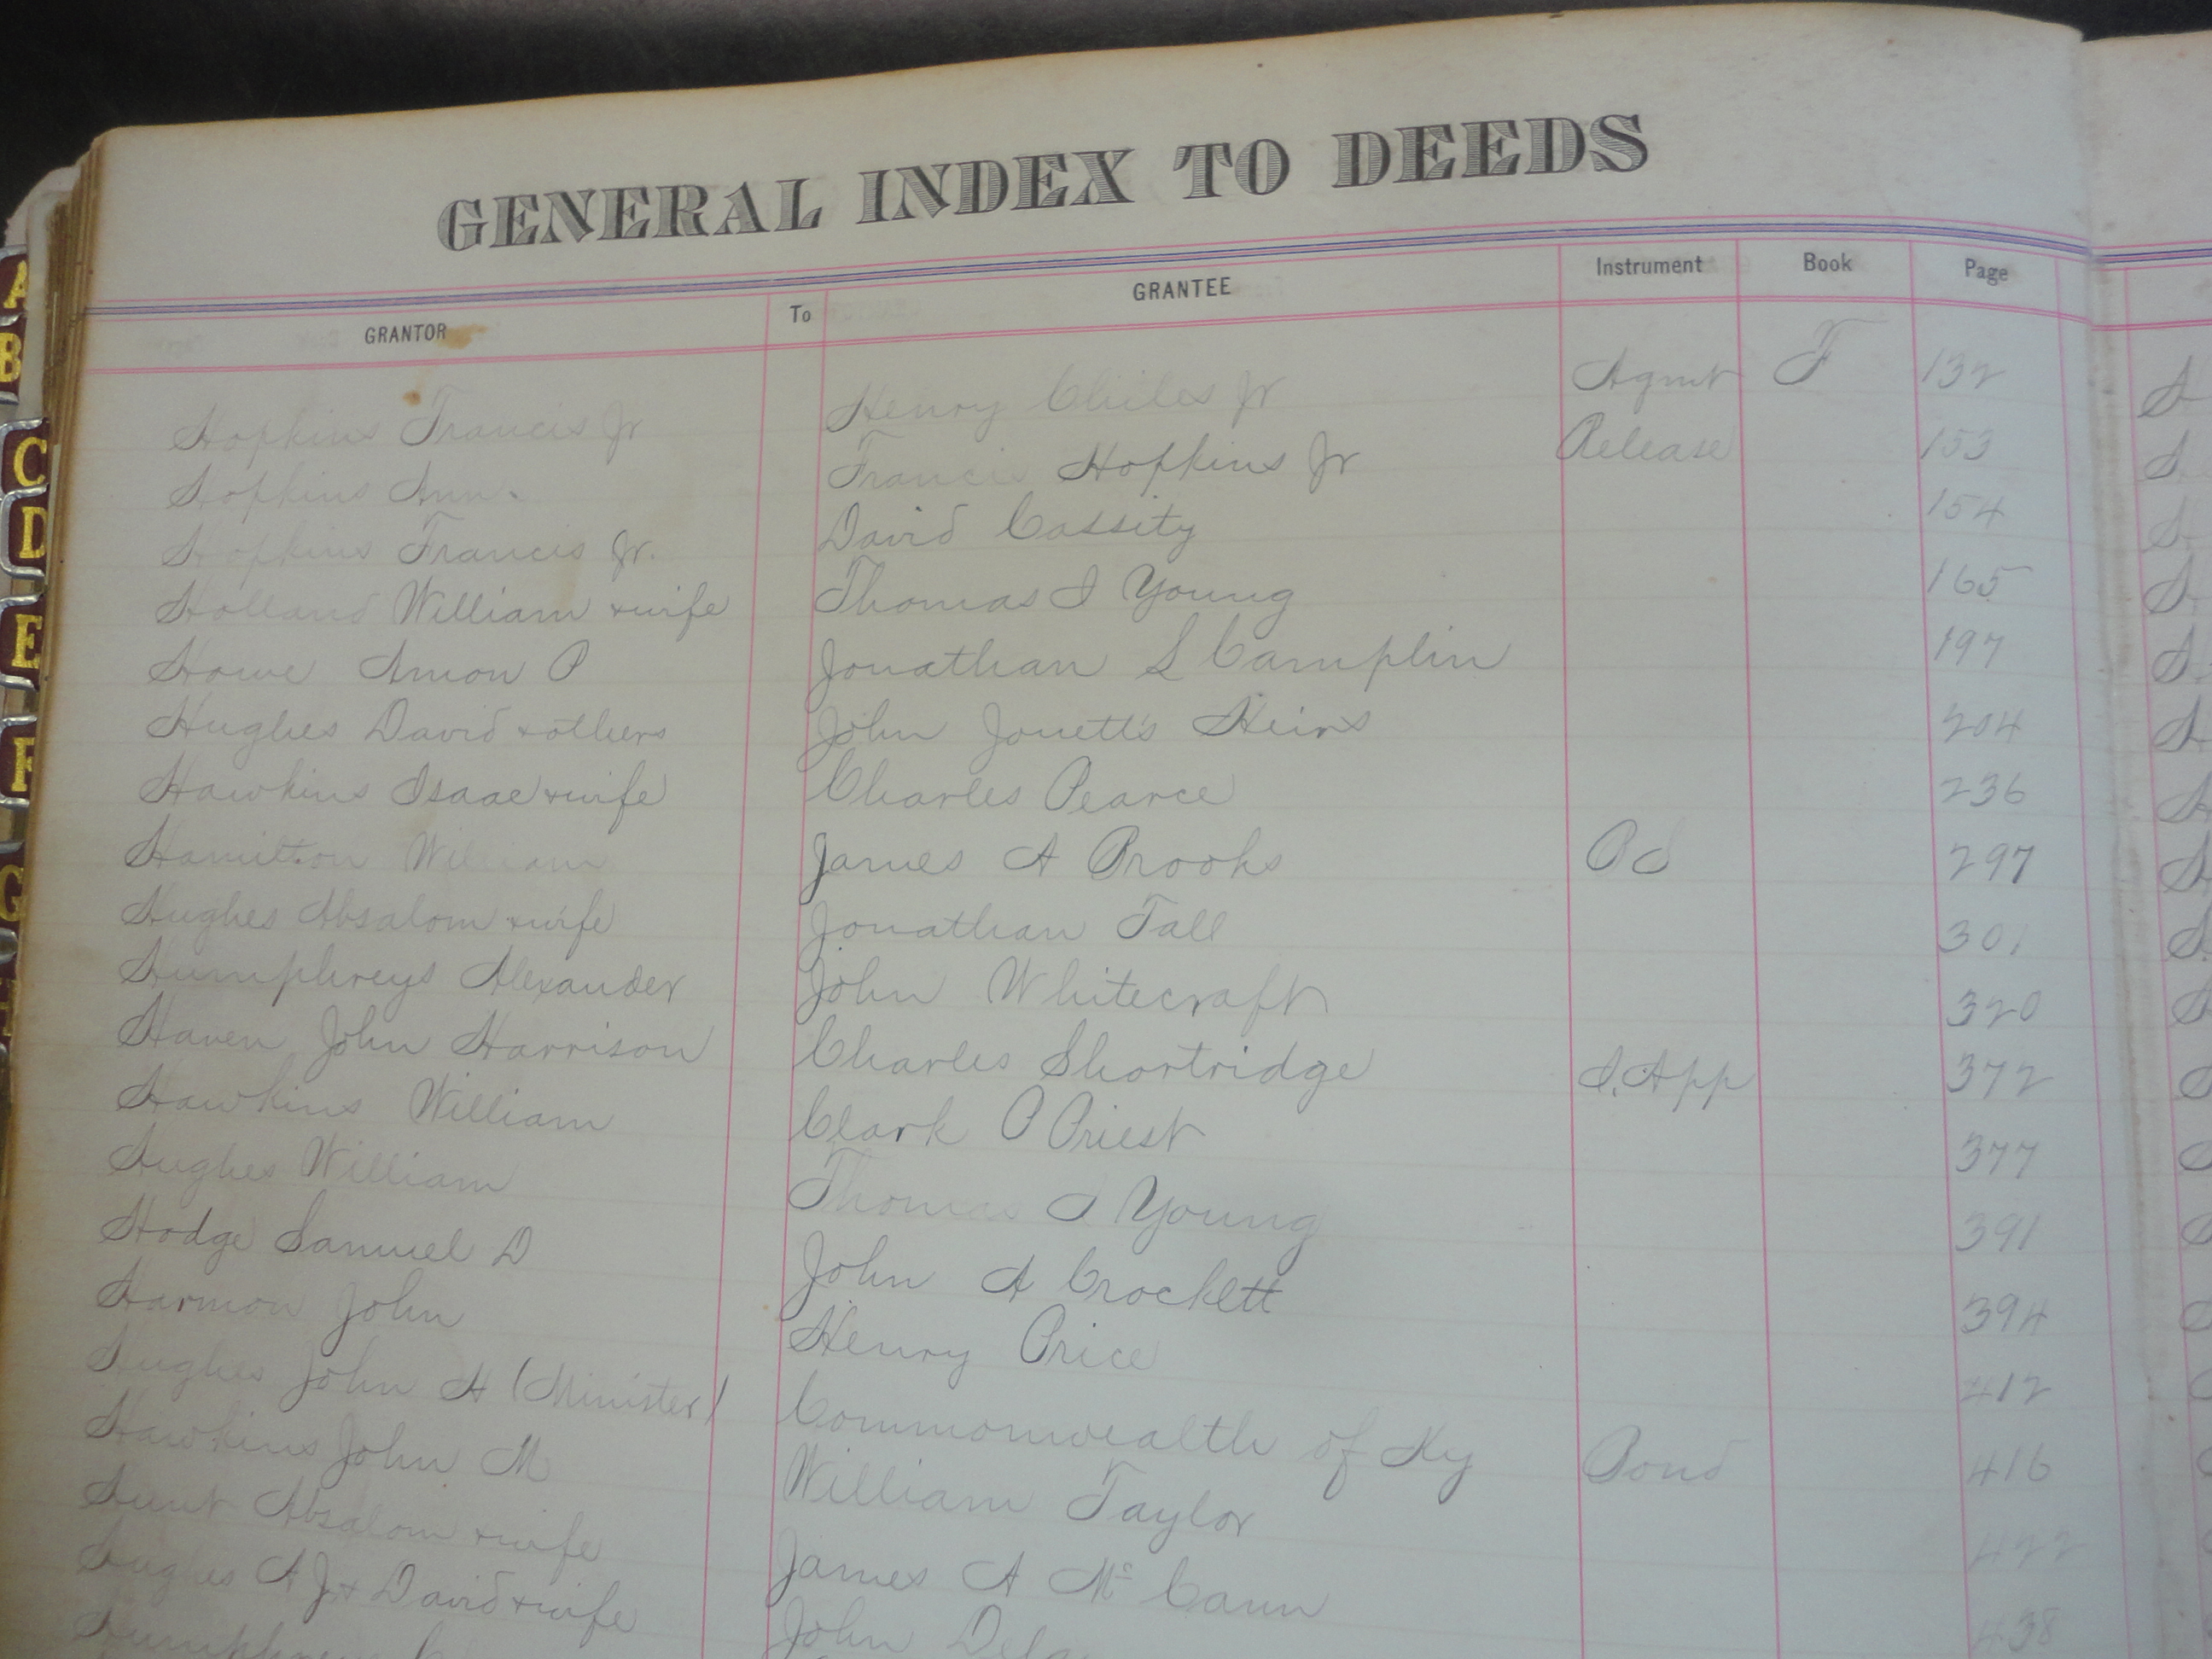 GENERAL INDEX TO DEEDS
GRANTOR To GRANTEE Instrument Book Page
Hopkins Francis Jr Henry Chiles Jr Agmt F 132
Hopkins Ann Francis Hopkins Jr Release 153
Hopkins Francis Jr. David Cassity 154
Holland William & wife Thomas I Young 165
Howe Amon P Jonathan S Camplin 197
Hughes David & others John Jouett's Heirs 204
Hawkins Isaac & wife Charles Pearce 236
Hamilton William James A Brooks 297
Hughes Absalom & wife Jonathan Tall 301
Humphreys Alexander John Whitecraft 320
Haven John Harrison Charles Shortridge I.App 372
Hawkins William Clark P Priest 377
Hughes William Thomas I Young 391
Hodge Samuel D John A Crockett 394
Harmon John Henry Price 412
Hughes John H (Minister) Commonwealth of Ky Bond 416
Hawkins John M William Taylor 422
Hunt Absalom & wife James A Mc Cann 438
Hughes A J & David & wife John
A
B
C
D
E
F
G